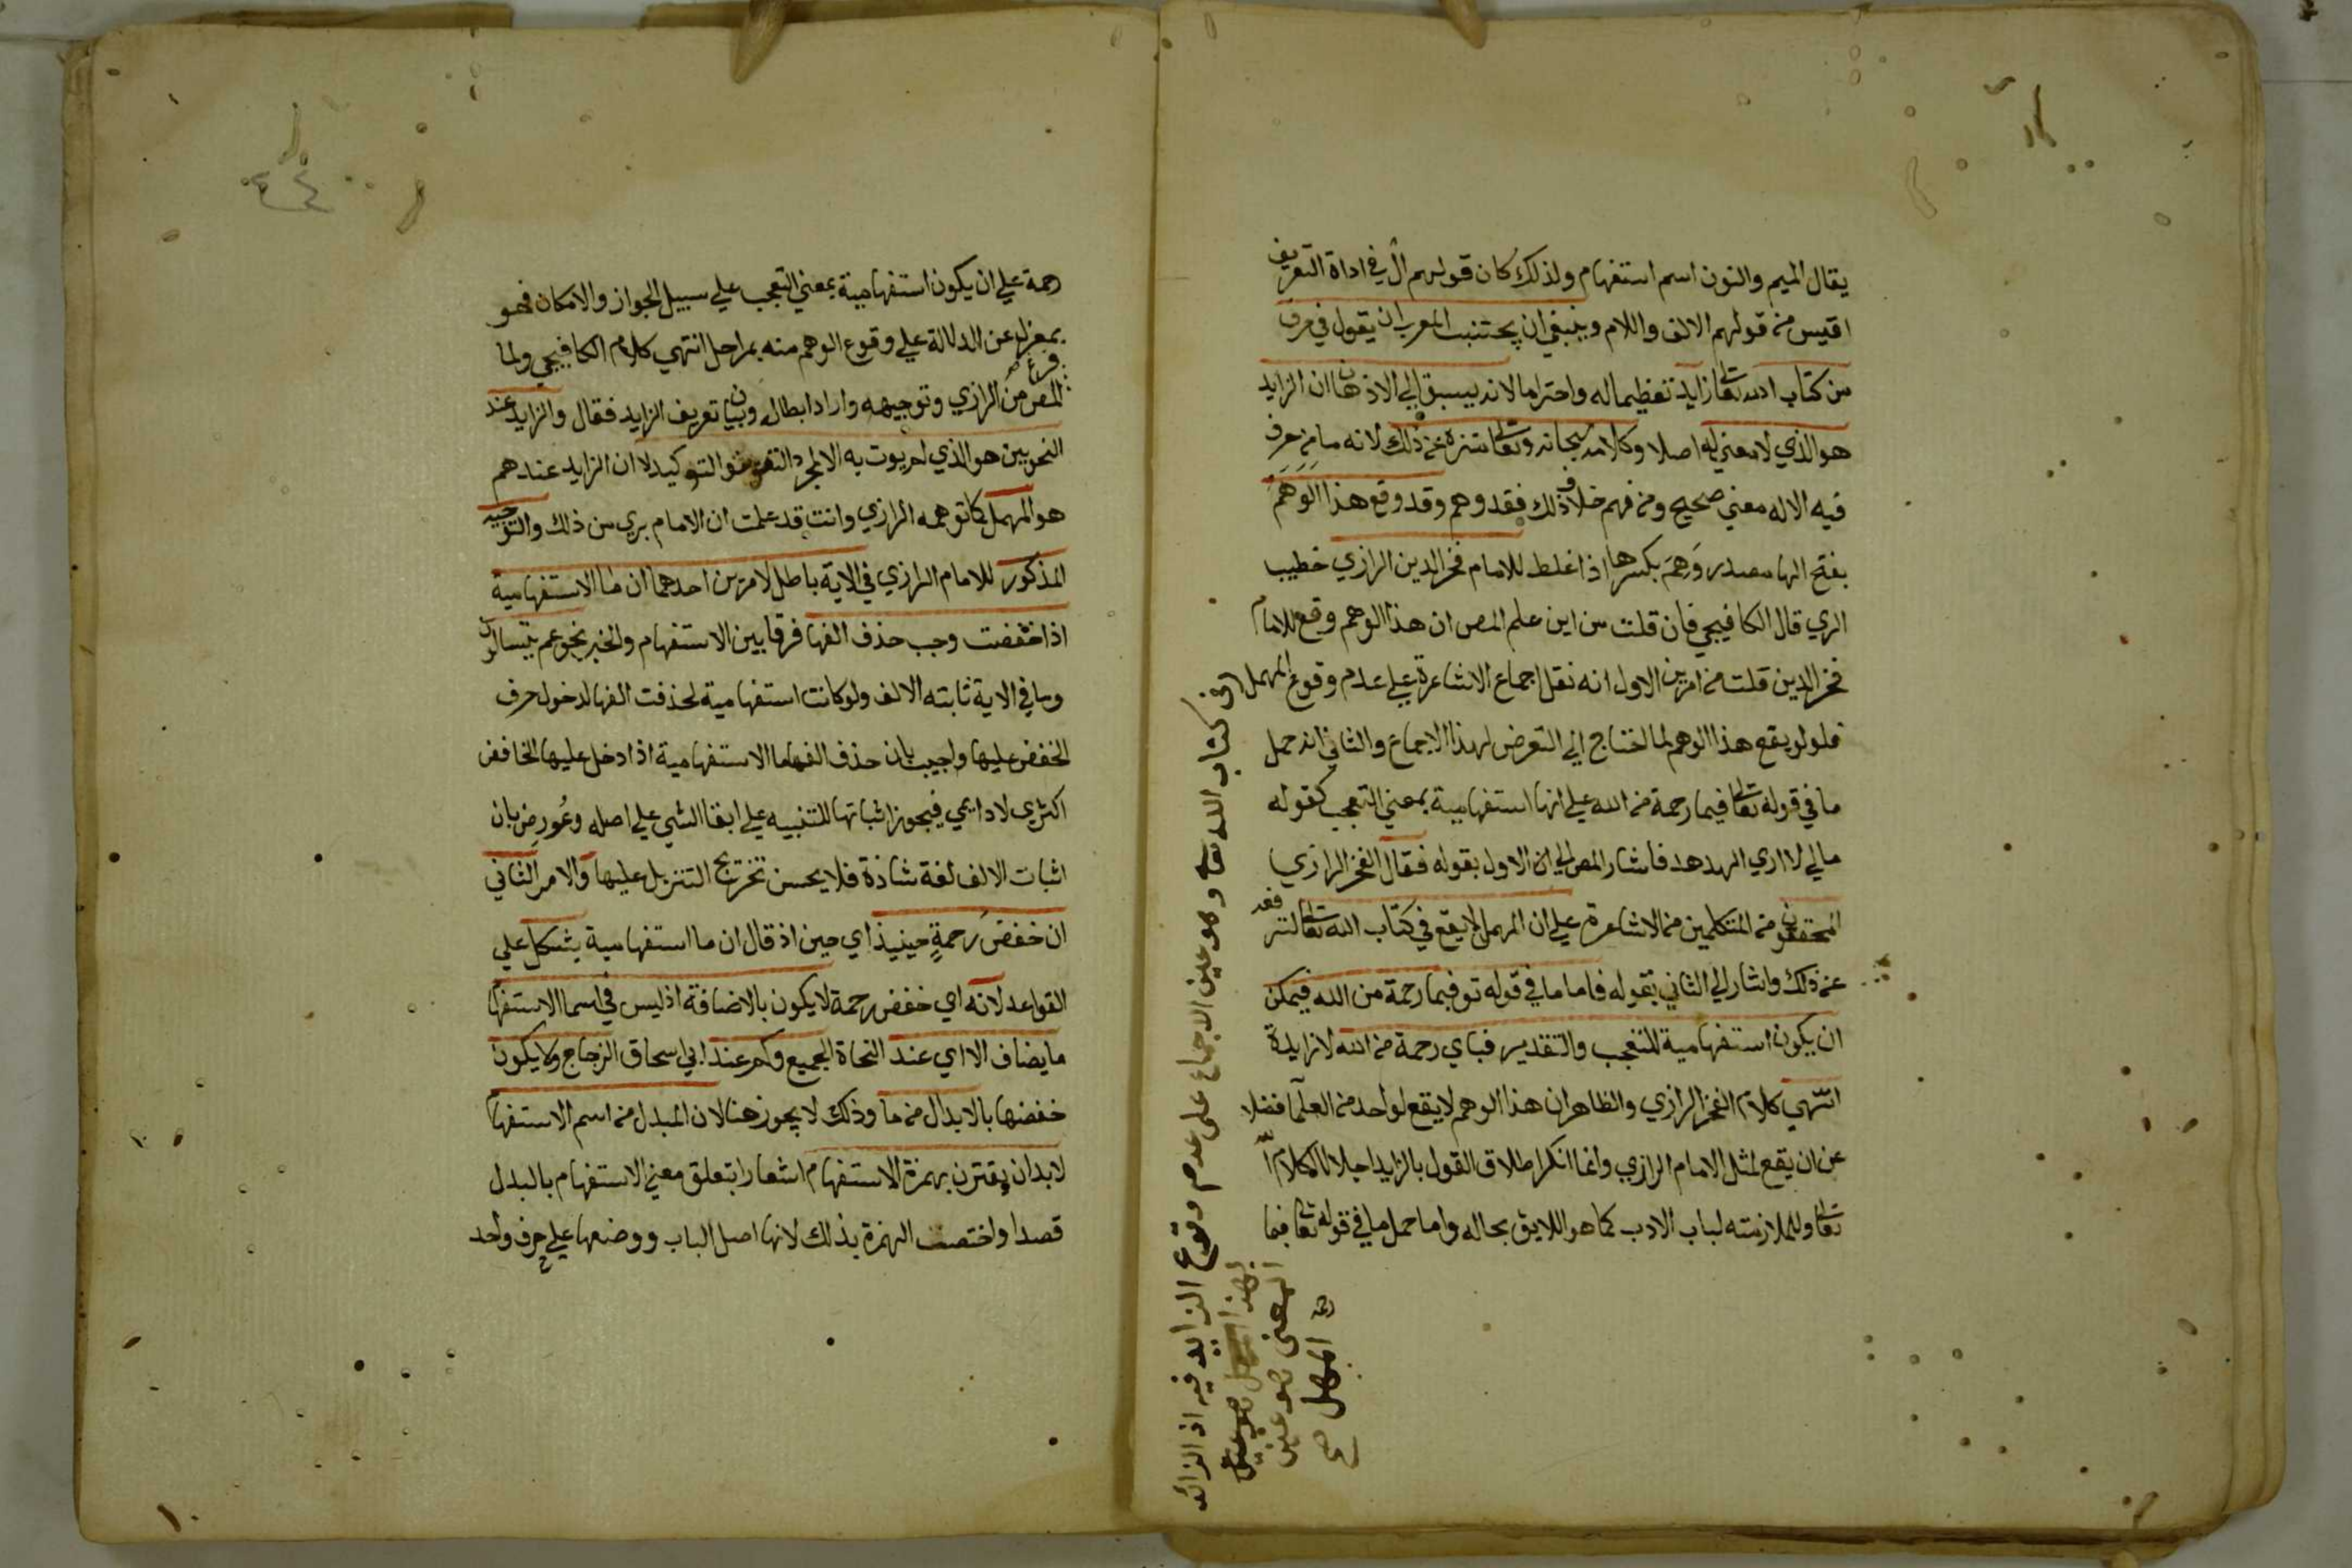 يقال الميم والنون اسم استفهام ولذلك كان قولهم ال في اداة التعريف
اقيس من قولهم الالف واللام وينبغي ان يجتنب المعرب ان يقول في حرف
من كتاب الله تعالى زايد تعظيما له واحتراما لانه يسبق الي الاذهان ان الزايد
هو الذي لا معني له اصلا وكلامه سبحانه وتعالى منزه عن ذلك لانه ما من حرف
فيه الا له معني صحيح ومن فهم خلاف ذلك فقد وهم وقد وقع هذا الوهم
بفتح الها مصدر وهم بكسرها اذا غلط للامام فخر الدين الرازي خطيب
الري قال الكافيجي فان قلت من اين علم المص ان هذا الوهم وقع للامام
فخر الدين قلت من امرين الاول انه نقل اجماع الاشاعرة علي عدم وقوع المهمل
فلو لم يقع هذا الوهم لما احتاج الي التعرض لهذا الاجماع والثاني انه حمل
ما في قوله تعالى فبما رحمة من الله علي انها استفهامية بمعني التعجب كقوله
مالي لا اري الهدهد فاشار المص الي ان الاول بقوله فقال الفخر الرازي
المحققون من المتكلمين من الاشاعرة علي ان المهمل لا يقع في كتاب الله تعالى لترفعه
عن ذلك واشار الي الثاني بقوله فاما ما في قوله تع فبما رحمة من الله فيمكن
ان يكون استفهامية للتعجب والتقدير فباي رحمة من الله لا زايدة
انتهي كلام الفخر الرازي والظاهر ان هذا الوهم لا يقع لواحد من العلما فضلا
عن ان يقع لمثل الامام الرازي وانما انكر اطلاق القول بالزايد اجلالا لكلام الله
تعالى وللملازمته لباب الادب كما هو اللايق بحاله واما حمل ما في قوله تعالى فبما
في كتاب الله تعالى وهو عين الاجماع علي عدم وقوع الزايد فيه اذ الزائد
بهذا المعنى هو عين
المهمل صح
رحمة علي ان يكون استفهامية بمعني التعجب علي سبيل الجواز والامكان فهو
بمعزل عن الدلالة علي وقوع الوهم منه بمراحل انتهي كلام الكافيجي ولما
فرغ المص من الرازي وتوجيهه واراد ابطاله وبيان تعريف الزايد فقال والزايد عند
النحويين هو الذي لم يوت به الا لمجرد التقوية والتوكيد لا ان الزايد عندهم
هو المهمل كما توهمه الرازي وانت قد علمت ان الامام بري من ذلك والتوجيه
المذكور للامام الرازي في الاية باطل لامرين احدهما ان ما الاستفهامية
اذا خفضت وجب حذف الفها فرقا بين الاستفهام والخبر نحو عم يتسالون
وما في الاية ثابته الالف ولو كانت استفهامية لحذفت الفها لدخول حرف
الخفض عليها واجيب بان حذف الف ما الاستفهامية اذا دخل عليها الخافض
اكثري لا دايمي فيجوز اثباتها للتنبيه علي ابقا الشي علي اصله وعورض بان
اثبات الالف لغة شاذة فلا يحسن تخريج التنزيل عليها والامر الثاني
ان خفض رحمة حينيذ اي حين اذ قال ان ما استفهامية يشكل علي
القواعد لانه اي خفض رحمة لا يكون بالاضافة اذ ليس في اسما الاستفهام
ما يضاف الا اي عند النحاة الجميع وكم عند ابي اسحاق الزجاج ولا يكون
خفضها بالابدال من ما وذلك لا يجوز هنا لان المبدل من اسم الاستفهام
لا بد ان يقترن بهمزة الاستفهام اشعارا بتعلق معني الاستفهام بالبدل
قصدا واختصت الهمزة بذلك لانها اصل الباب ووضعها علي حرف واحد